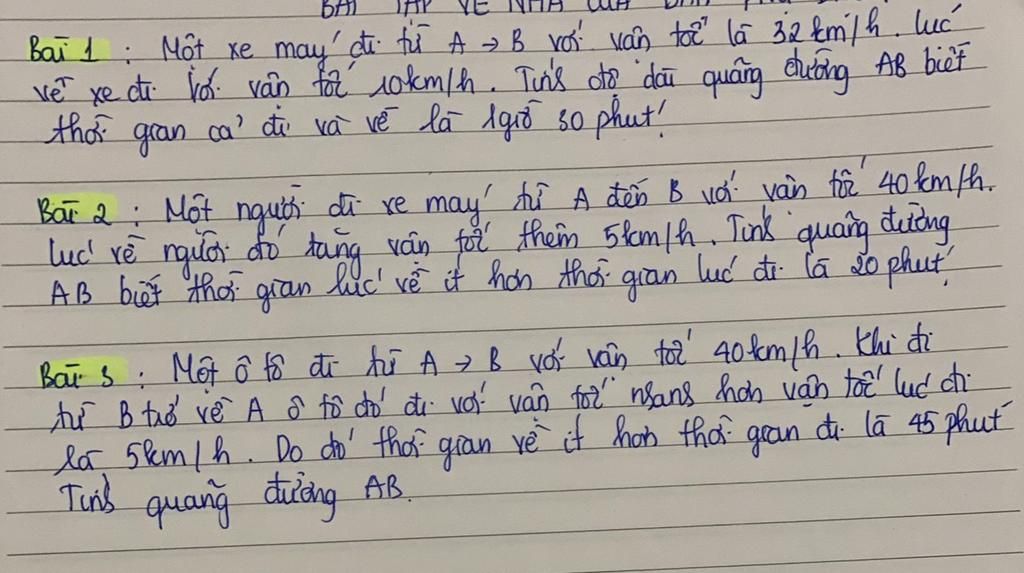 BÀI TẬP VỀ NHÀ CỦA
Bài 1 : Một xe máy đi từ A → B với vận tốc là 32 km/h. lúc
về xe đi với vận tốc 10km/h. Tính độ dài quãng đường AB biết
thời gian cả đi và về là 1giờ 30 phút!
Bài 2 : Một người đi xe máy từ A đến B với vận tốc 40 km/h.
lúc về người đó tăng vận tốc thêm 5km/h. Tính quãng đường
AB biết thời gian lúc về ít hơn thời gian lúc đi là 20 phút
Bài 3 : Một ô tô đi từ A → B với vận tốc 40km/h. Khi đi
từ B trở về A ô tô đó đi với vận tốc nhanh hơn vận tốc lúc đi
là 5km/h. Do đó thời gian về ít hơn thời gian đi là 45 phút
Tính quãng đường AB.